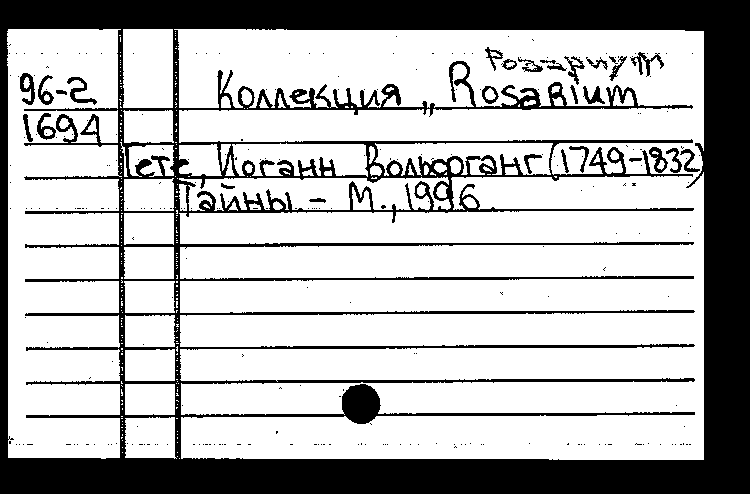 Розариум
96-2 Коллекция „Rosarium
1694
Гете, Иоганн Вольфганг (1749-1832)
Тайны. - М., 1996.